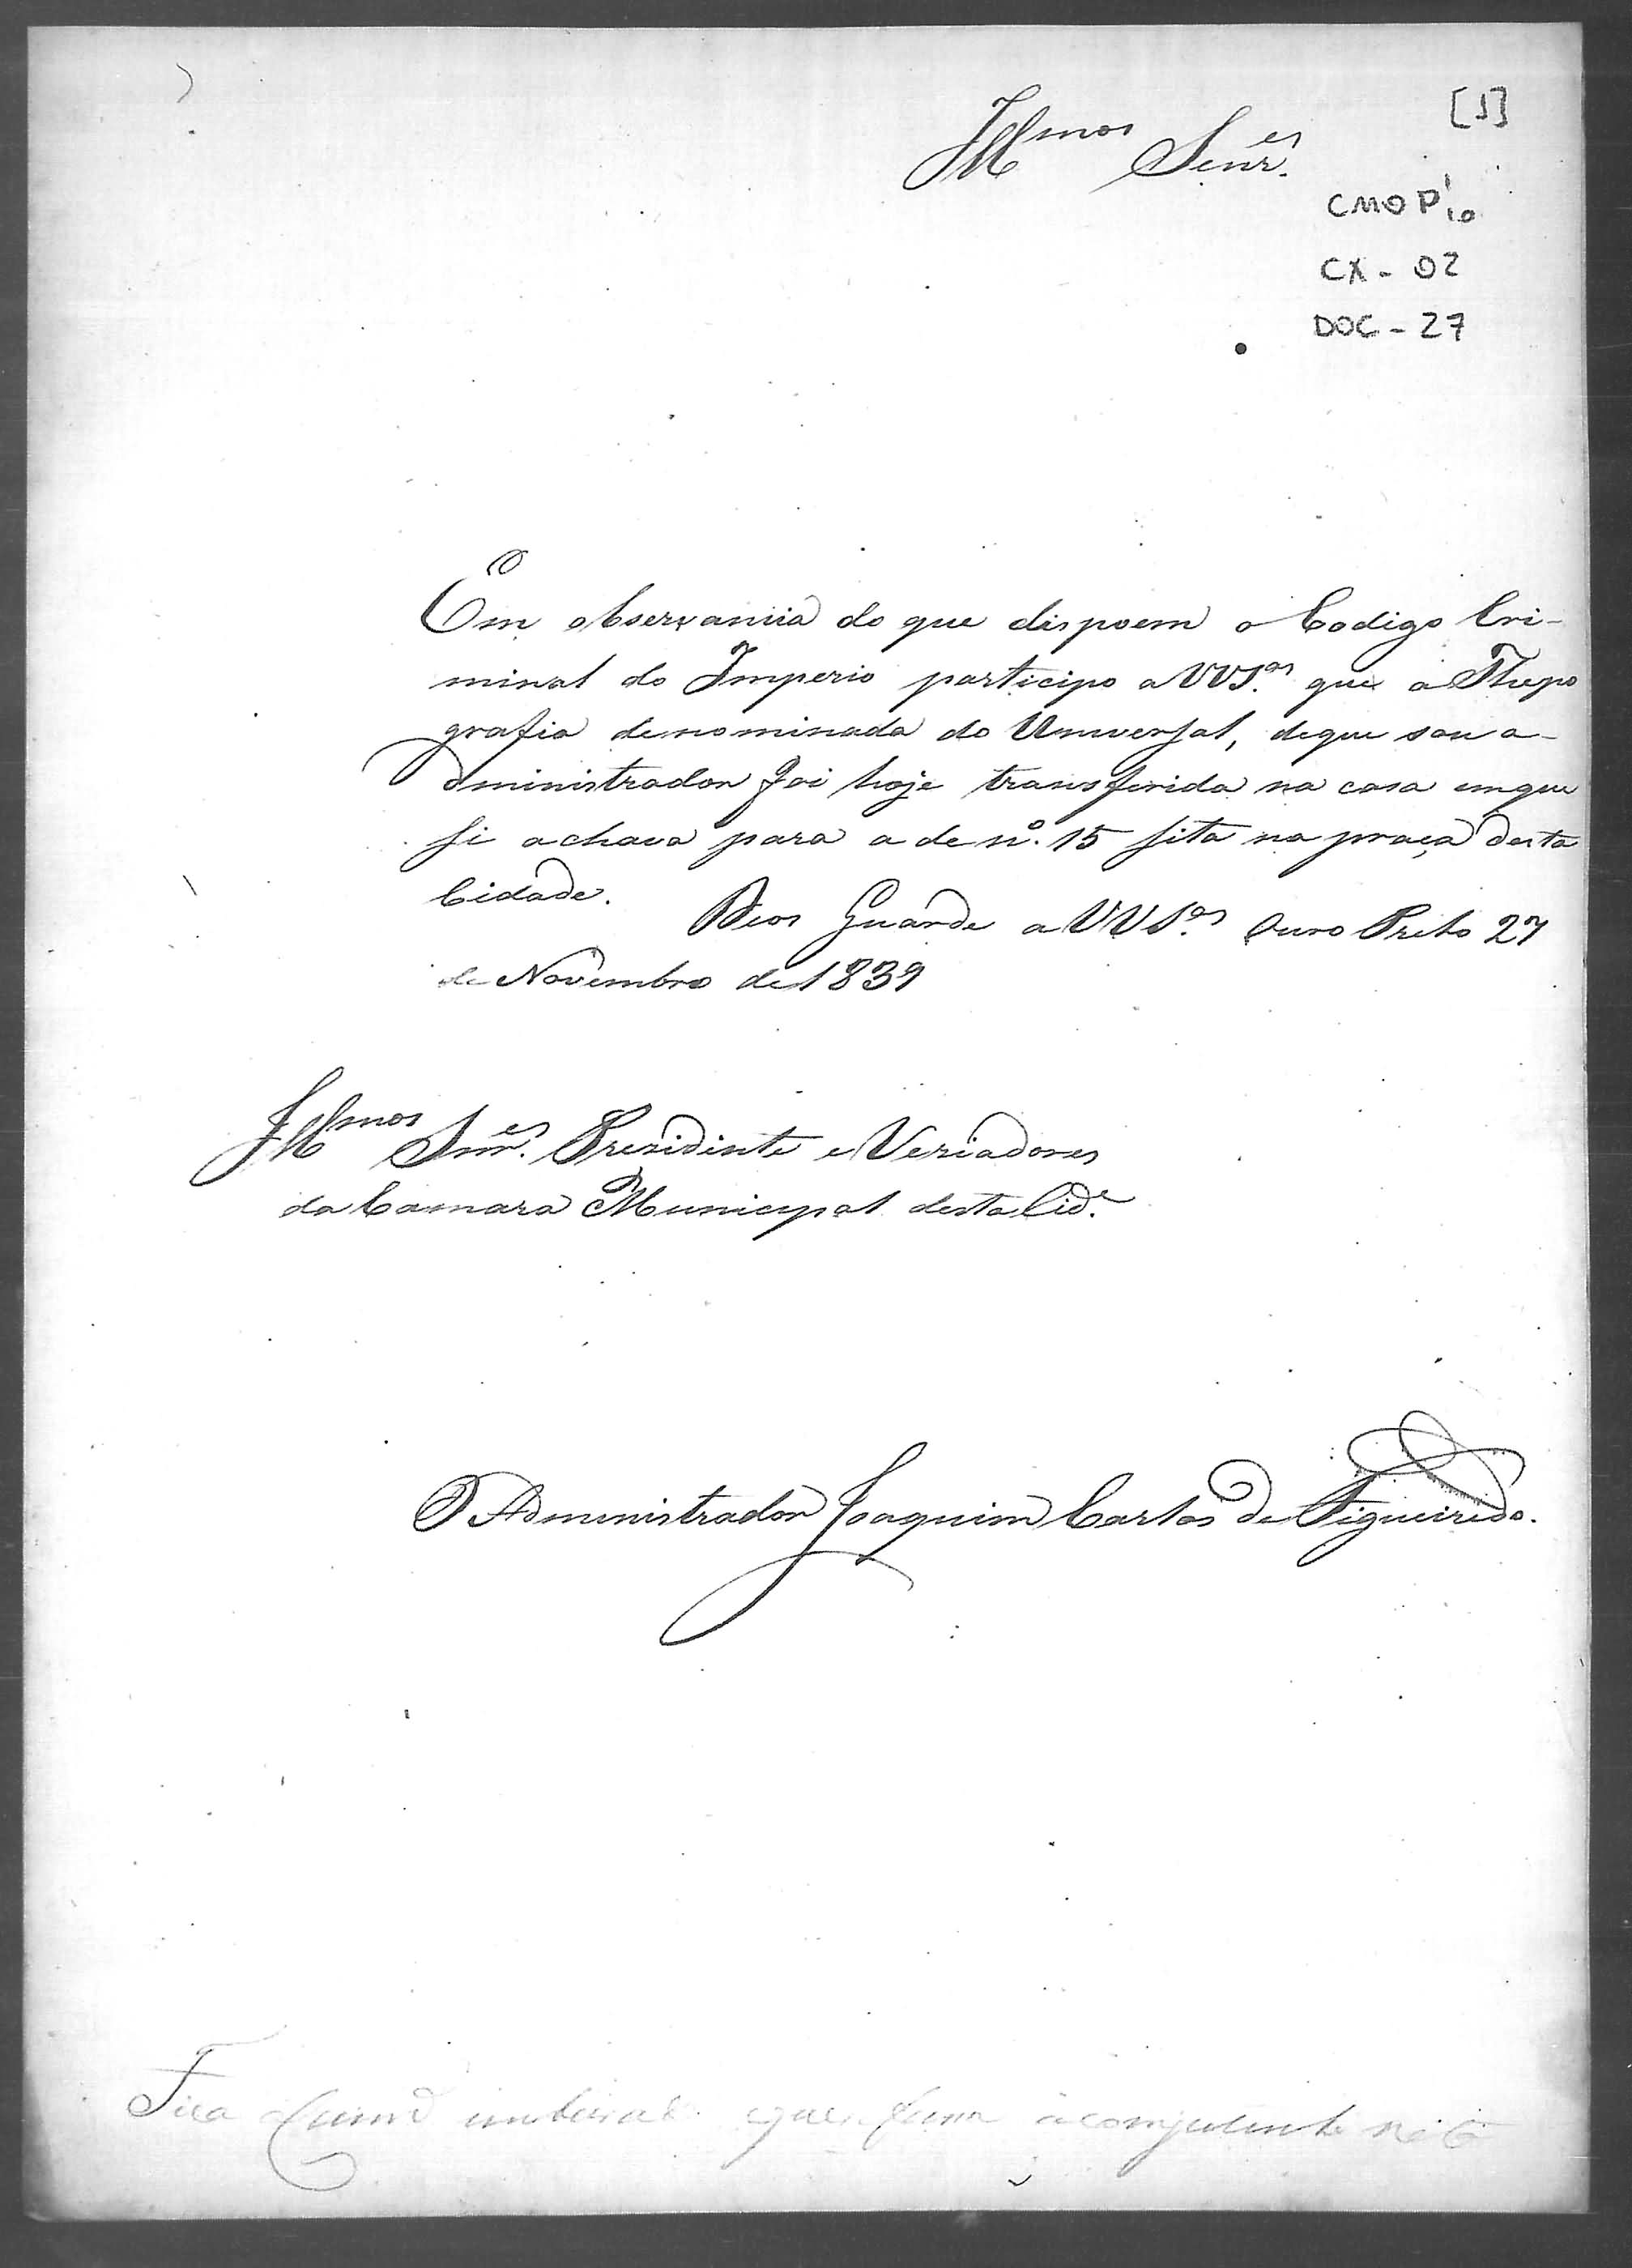 [1]
Illmos Senres.
CMOP 1/10
CX - 02
DOC - 27
Em observancia do que dispoem o Codigo Cri-
minal do Imperio participo a VVSas. que a Thepo
grafia denominada do Universal, deque sou a-
dministrador foi hoje transferida na casa emque
se achava para a de no. 15 sita na praça desta
Cidade.
Deos Guarde a VVSas. Ouro Preto 27
de Novembro de 1839
Illmos Snres. Presidente e Veriadores
da Camara Municipal desta Cide.
O Administrador Joaquim Carlos de Figueiredo.
Fica a Camra inteirada